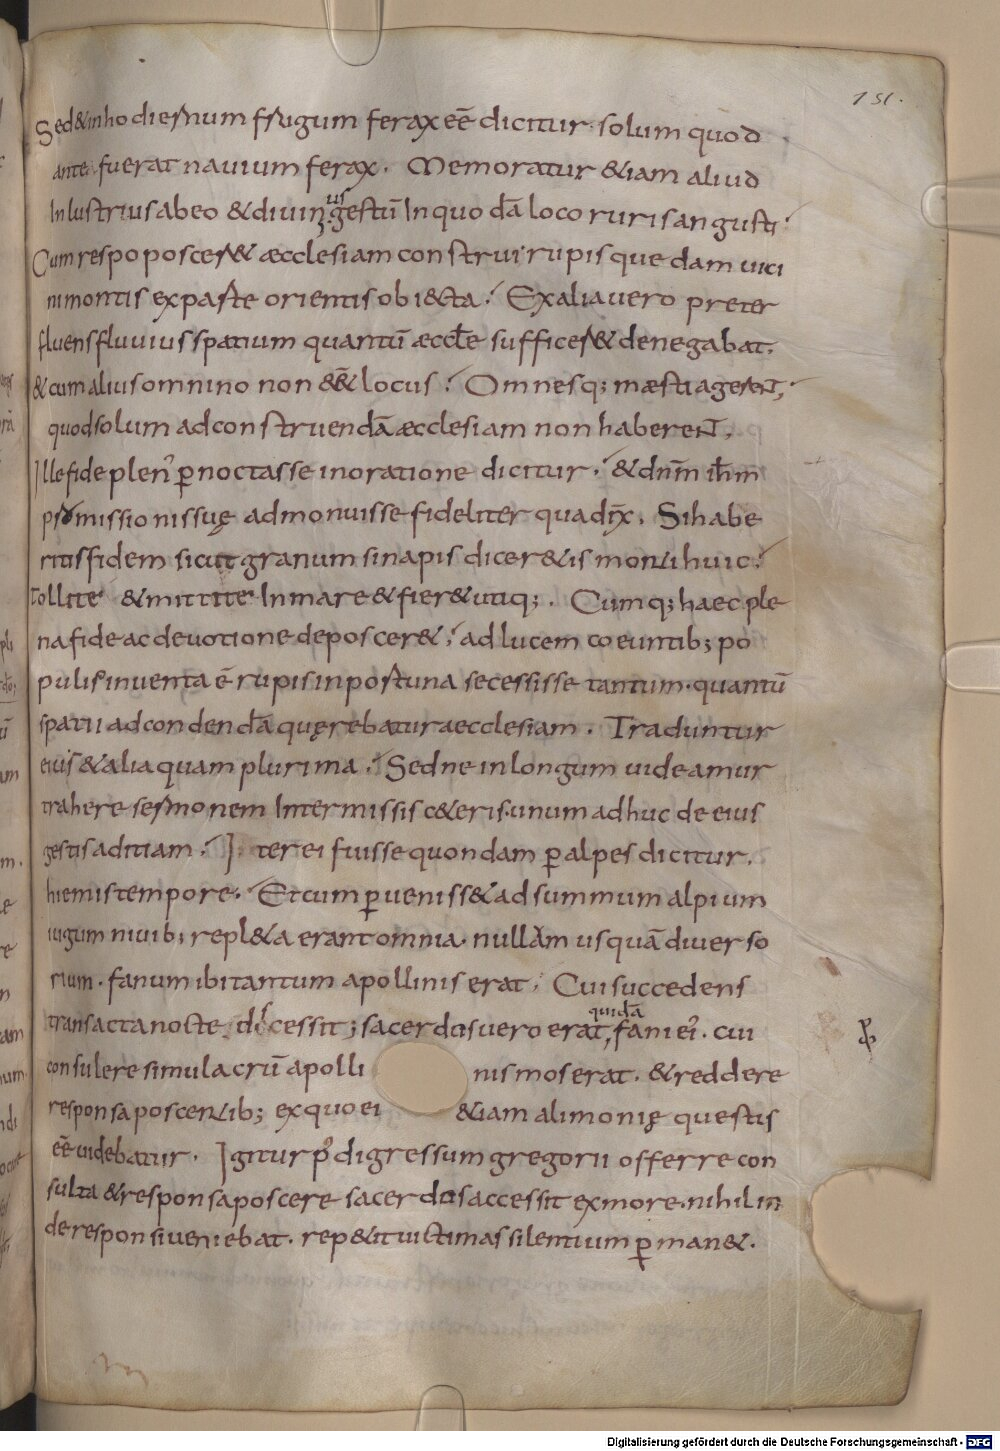 151.
Sed &inhodiernum frugum ferax eē dicitur solum quod
ante fuerat nauium ferax. Memoratur &iam aliud
Inlustrius abeo & diuinius gestū In quodā loco ruris angusti
Cum res poposcer& æcclesiam construi rupis quedam uici
ni montis ex parte orientis obiecta. Ex alia uero preter
fluens fluuius spatium quantū æccle sufficer& denegabat.
& cum alius omnino non ēēt locus. Omnesq; mæsti agerent,
quod solum ad construendā æcclesiam non haberent,
Ille fide plen' p̱noctasse in oratione dicitur. & dn̄m ih̄m
promissionis suę admonuisse fideliter qua dīx. Si habe
ritis fidem sicut granum sinapis dicer&is monti huic
tollite & mittite In mare & fier& utiq;. Cumq; haec ple
na fide ac deuotione deposcer&, ad lucem coeuntib; po
pulis inuenta ē rupis inportuna secessisse tantum quantū
spatii ad condendā quęrebatur aecclesiam. Traduntur
eius & alia quam plurima. Sed ne in longum uideamur
trahere sermonem Intermissis c&eris unum adhuc de eius
gestis aditiam. Iter ei fuisse quondam p̱ alpes dicitur.
hiemis tempore. Et cum p̱uenisset ad summum alpium
iugum niuib; repl&a erant omnia. nullum usquā diuerso
rium. fanum ibi tantum apollinis erat. Cui succedens
transacta nocte discessit; sacerdos uero erat, quidā fani ei'. cui
consulere simulacrū apolli nis mos erat. & reddere
responsa poscentib; ex quo ei &iam alimonię questus
eē uidebatur. Igitur p' digressum gregorii offerre con
sulta & responsa poscere sacerdos accessit ex more. nihil in
de responsi ueniebat. rep&it uictimas silentium p̱man&.